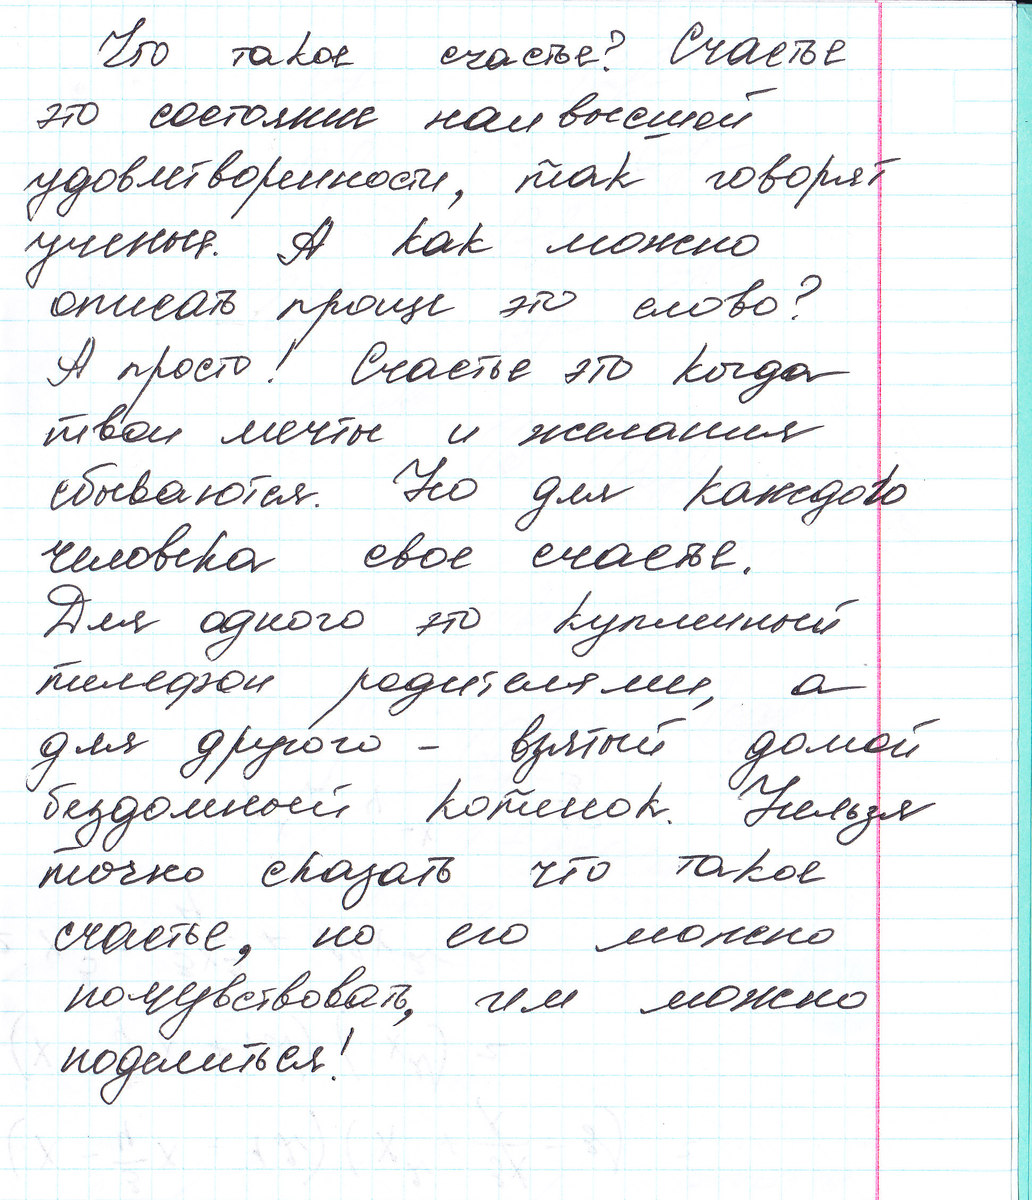 Что такое счастье? Счастье
это состояние наивысшей
удовлетворенности, так говорят
ученые. А как можно
описать проще это слово?
А просто! Счастье это когда
твои мечты и желания
сбываются. Но для каждого
человека свое счастье.
Для одного это купленный
телефон родителями, а
для другого - взятый домой
бездомный котенок. Нельзя
точно сказать что такое
счастье, но его можно
почувствовать, им можно
поделиться!